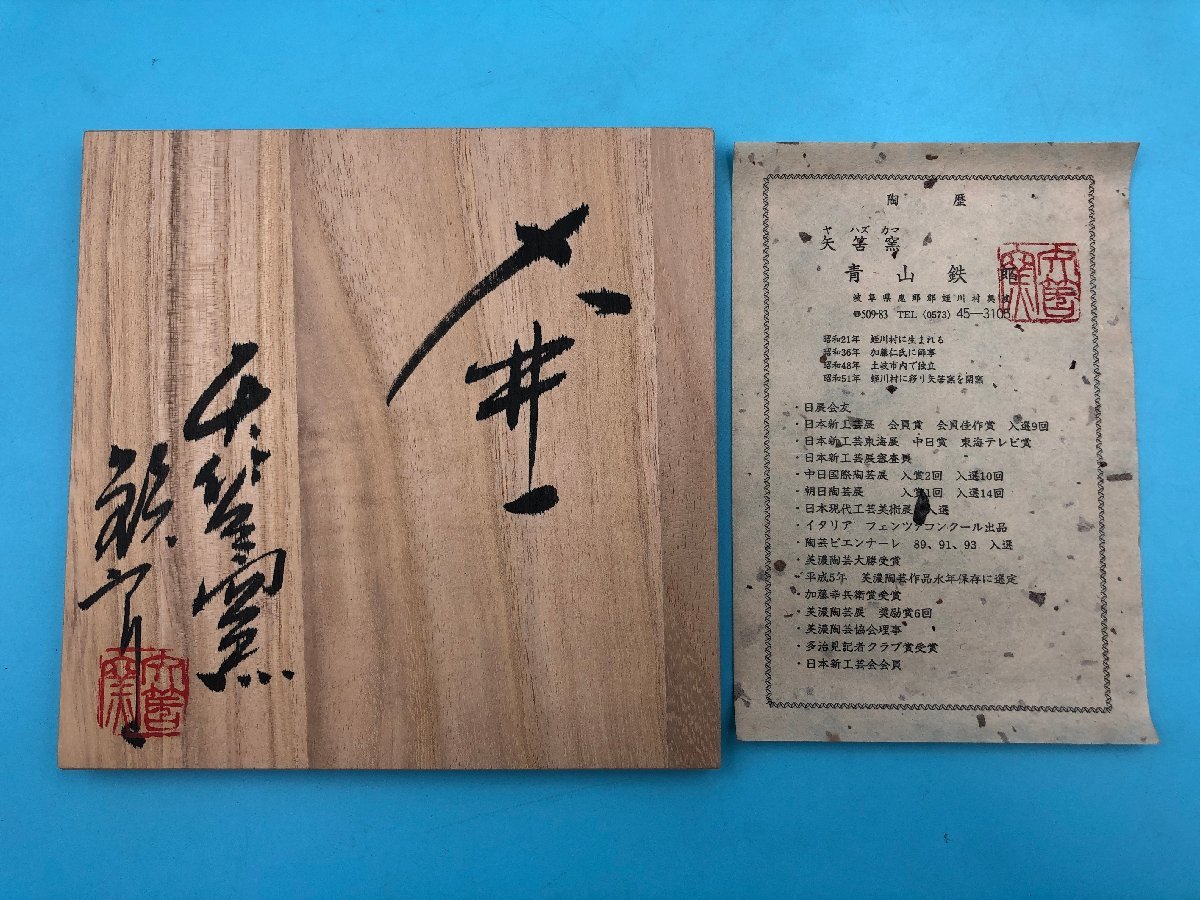 大井
矢筈窯
鉄郎
陶歴
ヤ ハズ カマ
矢 筈 窯
青 山 鉄 郎
岐阜県恵那郡蛭川村奥渡
☎509-83 TEL (0573) 45-3108
昭和21年 蛭川村に生まれる
昭和36年 加藤仁氏に師事
昭和48年 土岐市内で独立
昭和51年 蛭川村に移り矢筈窯を開窯
・日展会友
・日本新工芸展 会員賞 会員佳作賞 入選9回
・日本新工芸東海展 中日賞 東海テレビ賞
・日本新工芸展審査員
・中日国際陶芸展 入賞2回 入選10回
・朝日陶芸展 入賞1回 入選14回
・日本現代工芸美術展 入選
・イタリア フェンツァコンクール出品
・陶芸ビエンナーレ 89、91、93 入選
・美濃陶芸大勝受賞
・平成5年 美濃陶芸作品永年保存に選定
・加藤幸兵衛賞受賞
・美濃陶芸展 奨励賞6回
・美濃陶芸協会理事
・多治見記者クラブ賞受賞
・日本新工芸会会員